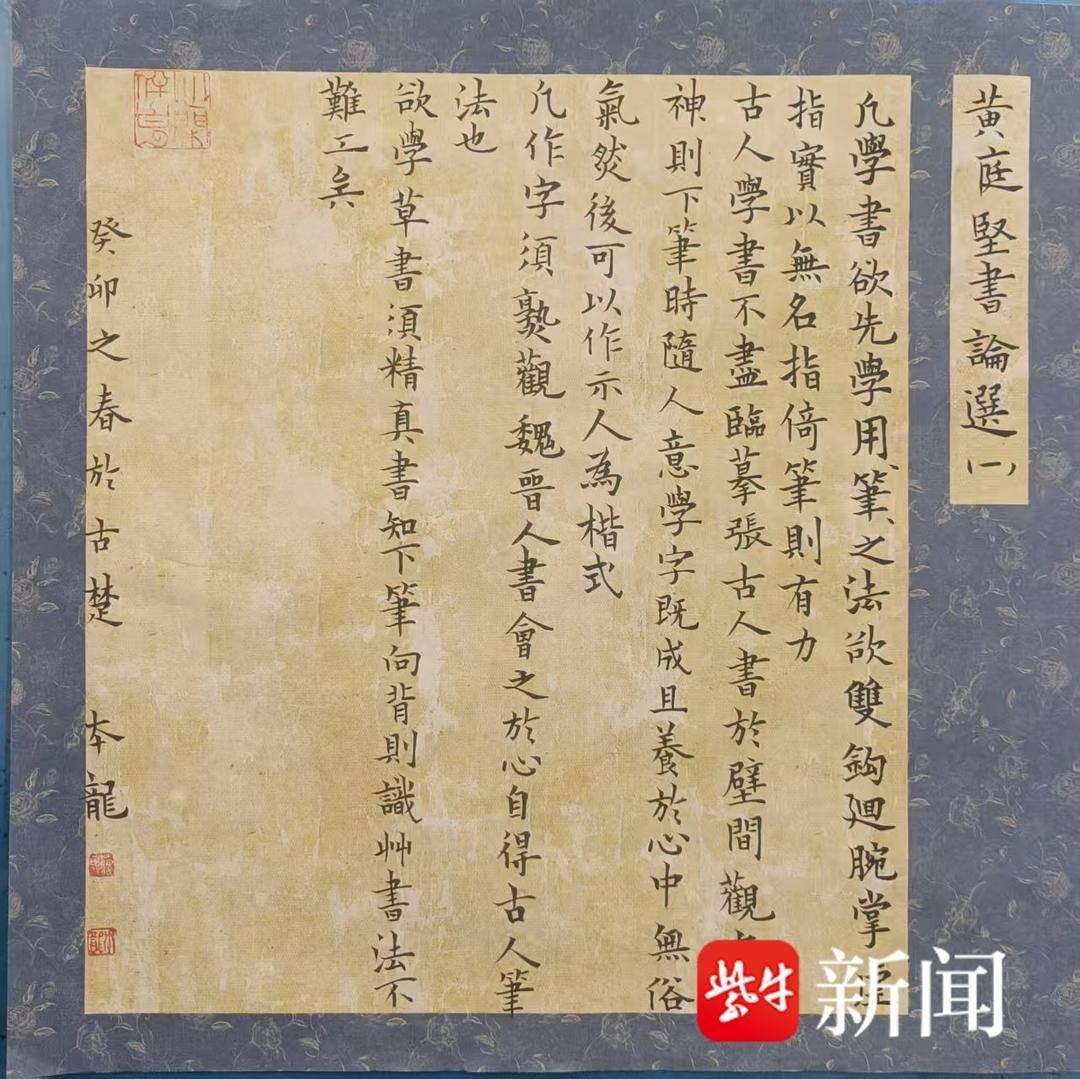 黄庭堅書論選（一）
凡學書欲先學用筆之法欲雙鉤廻腕掌虛
指實以無名指倚筆則有力
古人學書不盡臨摹張古人書於壁間觀
神則下筆時隨人意學字既成且養於心中無俗
氣然後可以作示人為楷式
凡作字須熟觀魏晉人書會之於心自得古人筆
法也
欲學草書須精真書知下筆向背則識艸書法不
難工矣
癸卯之春於古楚 本龍
紫牛新闻